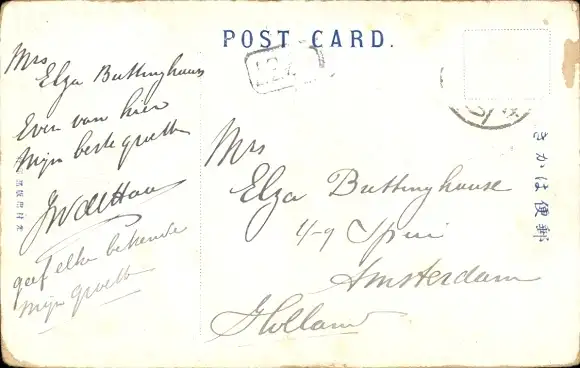 POST CARD.
Mrs
Elza Buttinghausen
Even van hier
Mijn beste groeten
JW de Haas
geef elke bekende
Mijn groeten
Mrs
Elza Buttinghouse
4-9 Spui
Amsterdam
Holland
きかは便郵